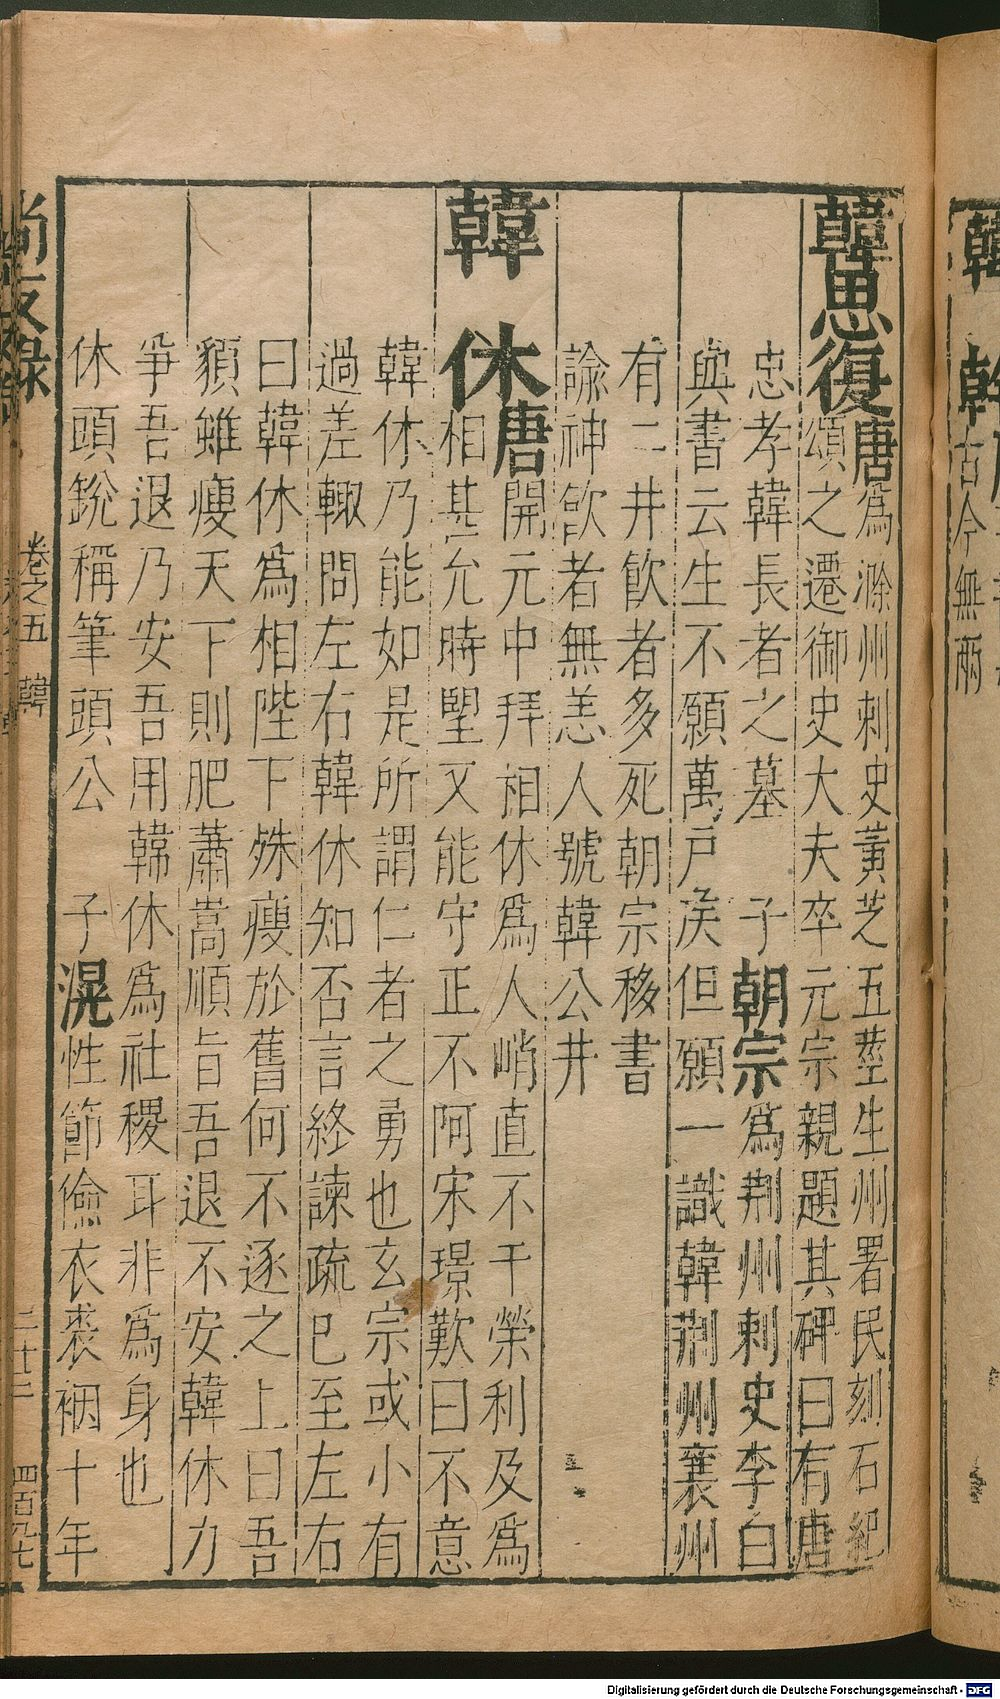 韓思復唐爲滁州刺史黃芝五莖生州署民刻石紀
頌之遷御史大夫卒元宗親題其碑曰有唐
忠孝韓長者之墓 子朝宗爲荆州刺史李白
與書云生不願萬戶侯但願一識韓荆州襄州
有二井飲者多死朝宗移書
諭神飲者無恙人號韓公井
韓 休唐開元中拜相休爲人峭直不干榮利及爲
相甚允時望又能守正不阿宋璟歎曰不意
韓休乃能如是所謂仁者之勇也玄宗或小有
過差輙問左右韓休知否言終諫疏已至左右
曰韓休爲相陛下殊瘦於舊何不逐之上曰吾
貌雖瘦天下則肥蕭嵩順旨吾退不安韓休力
爭吾退乃安吾用韓休爲社稷耳非爲身也
休頭銳稱筆頭公 子滉性節儉衣裘裀十年
尚友錄 卷之五 韓 二十二 四百九七
韓 幹
古今無兩
Digitalisierung gefördert durch die Deutsche Forschungsgemeinschaft - DFG